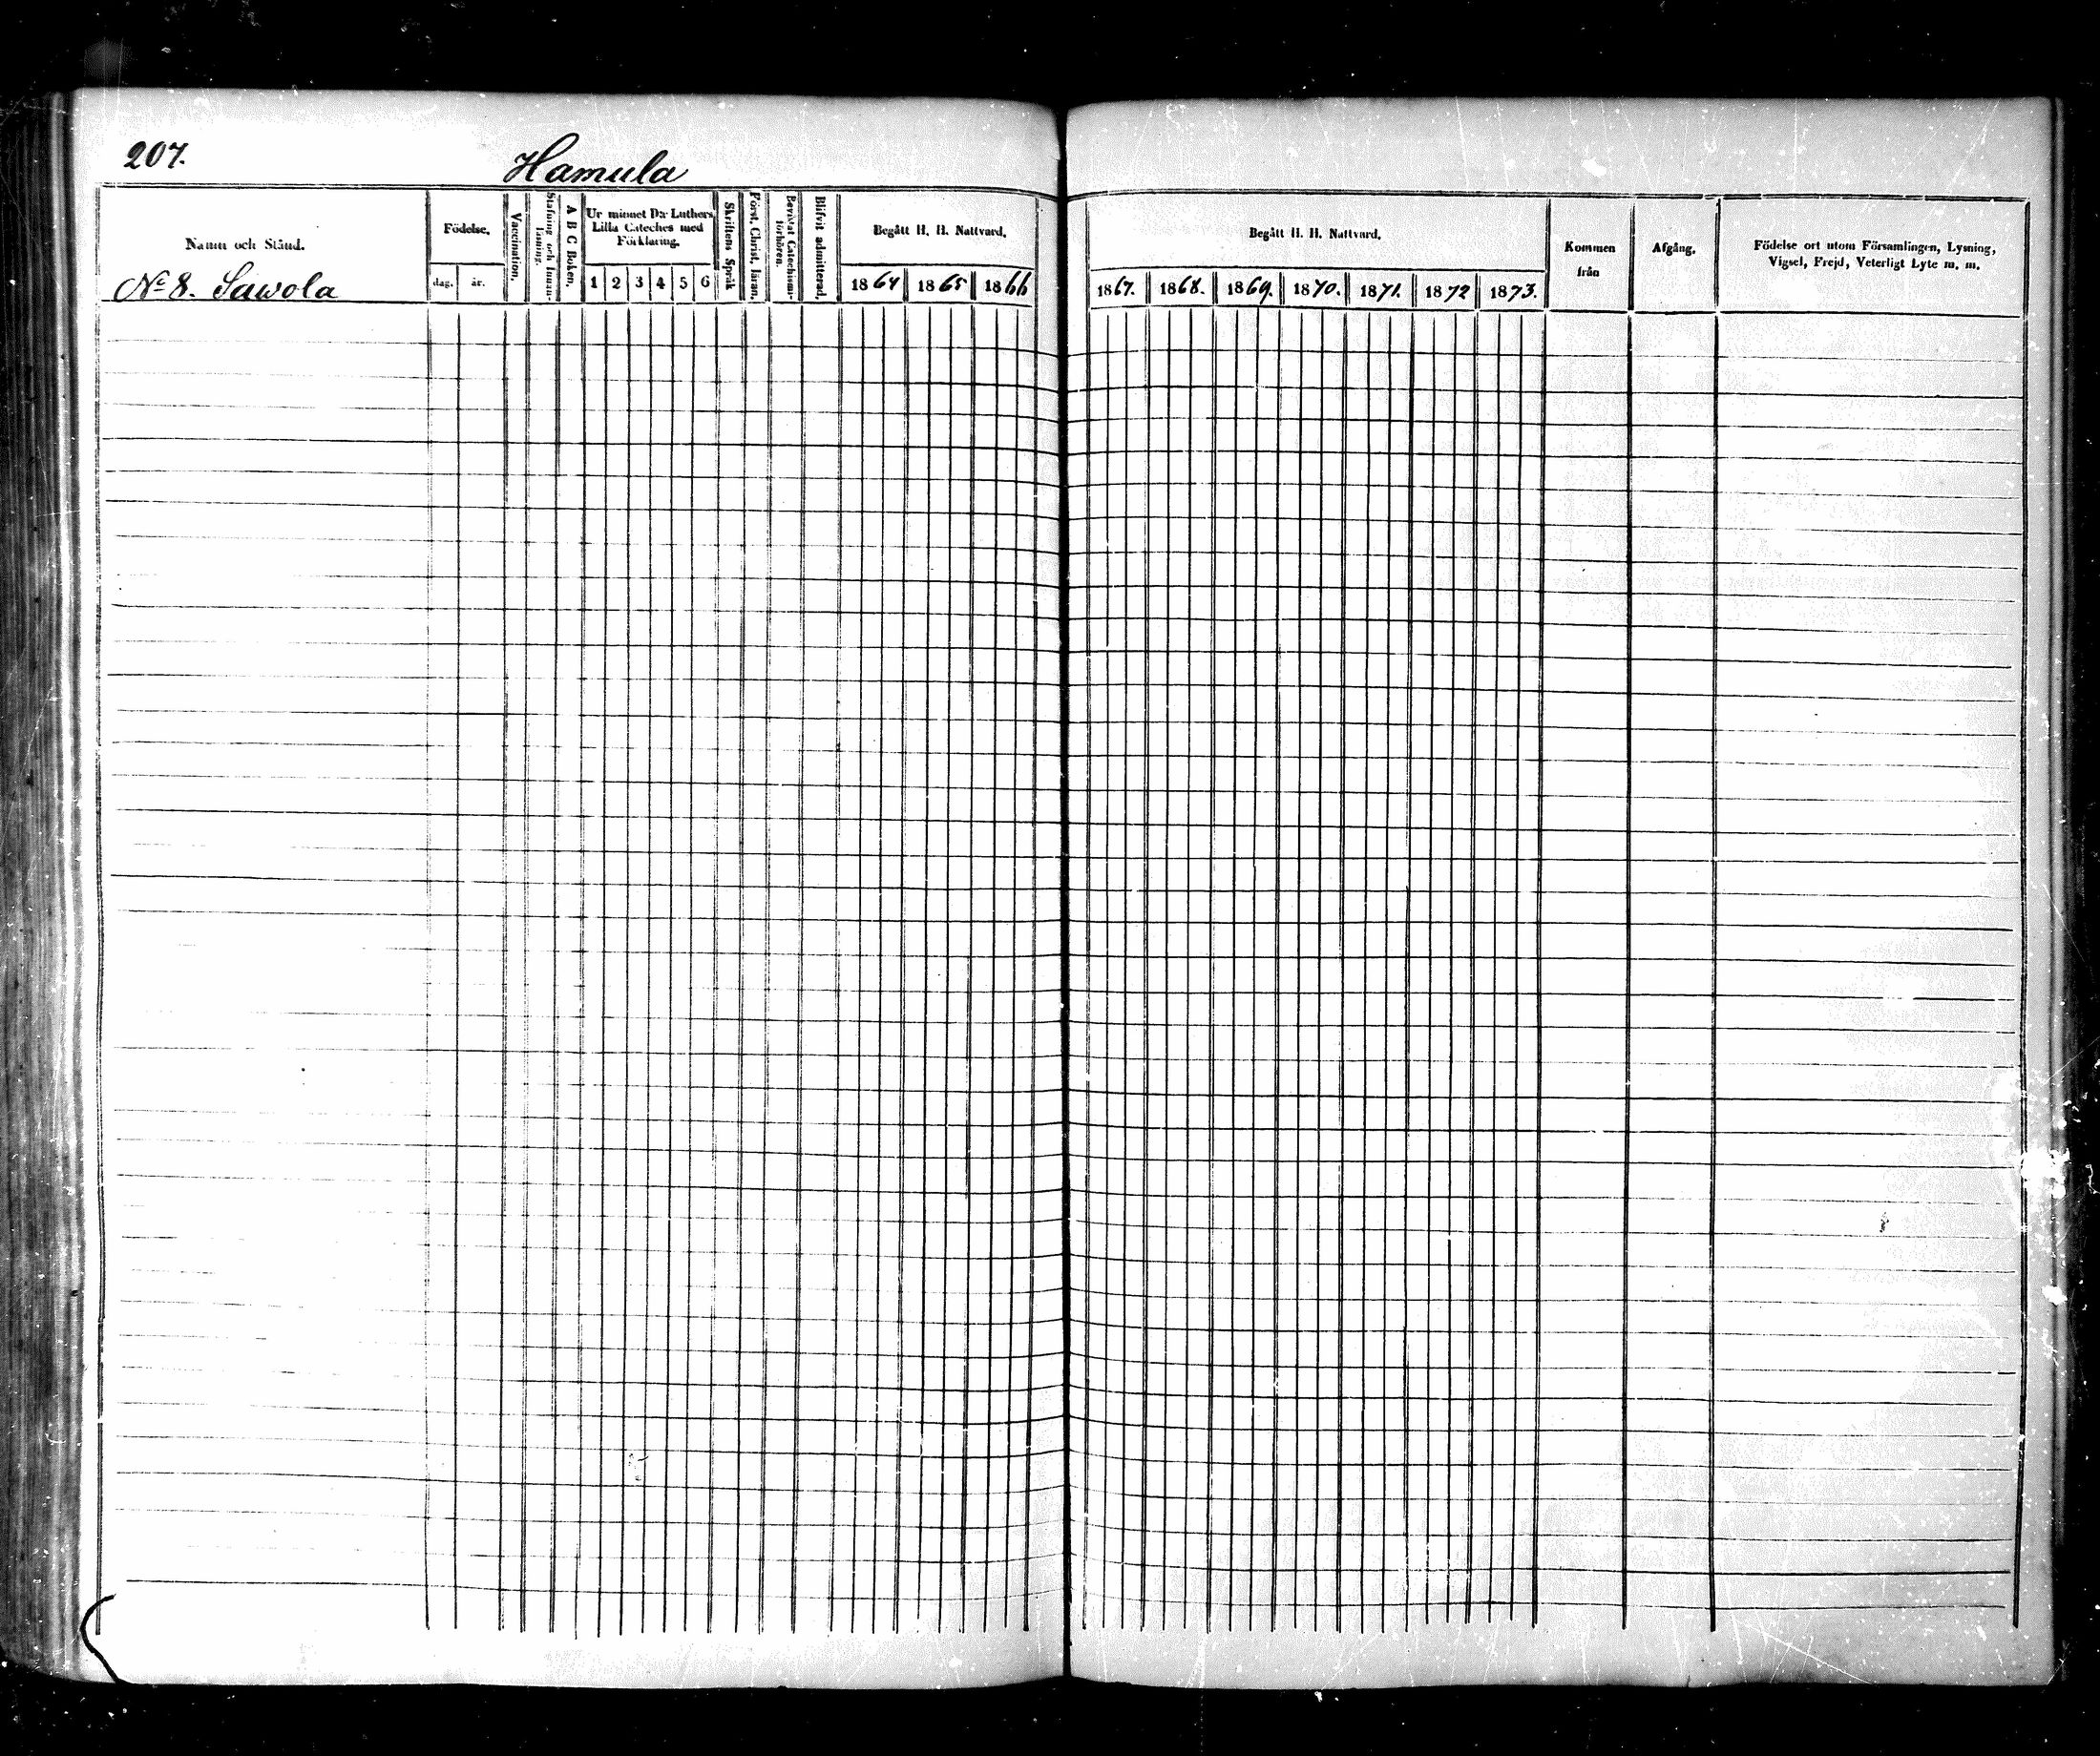 207.
Hamula
Namn och Stånd.
No 8. Sawola
Födelse.
dag. år.
Vaccination.
Stafning och Innan-
läsning.
A B C Boken.
Ur minnet Dr Luthers
Lilla Cateches med
Förklaring.
1 2 3 4 5 6
Skriftens Språk
Först. Christ. läran.
Bevistat Catechismi-
förhören.
Blifvit admitterad.
Begått H. H. Nattvard.
1864 1865 1866
Begått H. H. Nattvard.
1867. 1868. 1869. 1870. 1871. 1872 1873.
Kommen
från
Afgång.
Födelse ort utom Församlingen, Lysning,
Vigsel, Frejd, Veterligt Lyte m. m.